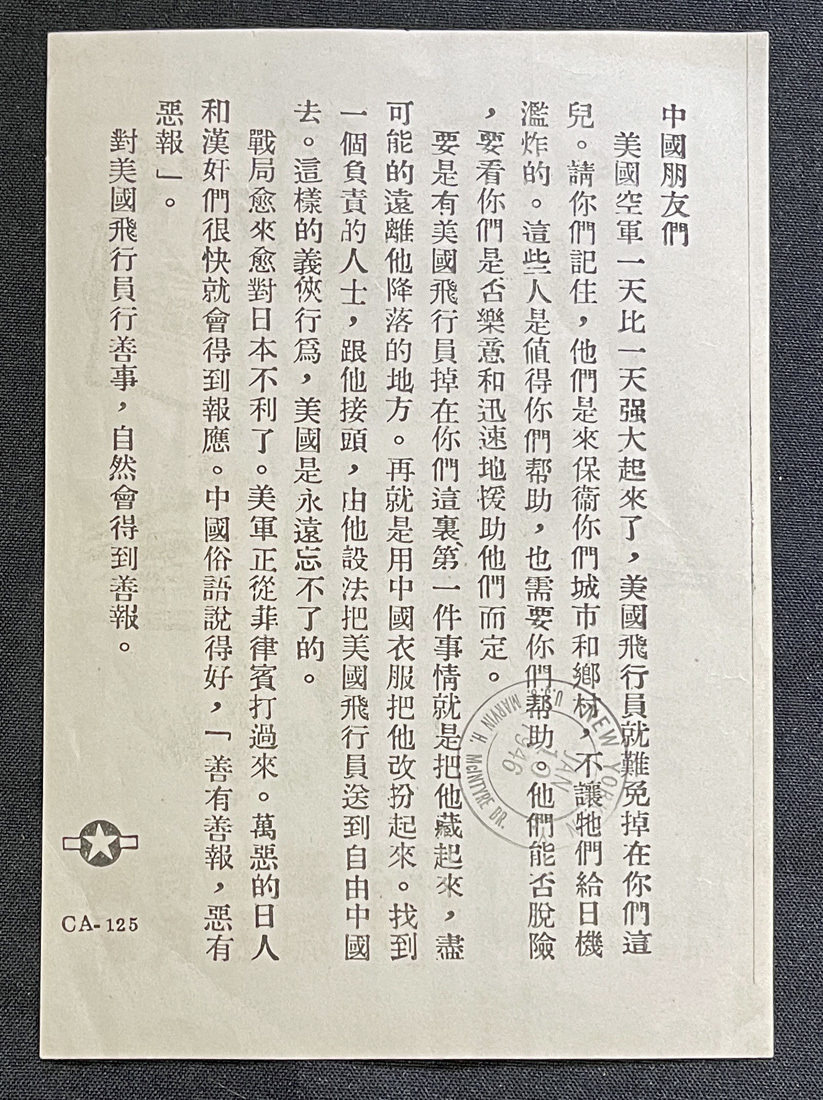 中國朋友們
美國空軍一天比一天强大起來了，美國飛行員就難免掉在你們這
兒。請你們記住，他們是來保衞你們城市和鄉村，不讓牠們給日機
濫炸的。這些人是値得你們帮助，也需要你們帮助。他們能否脫險
，要看你們是否樂意和迅速地援助他們而定。
要是有美國飛行員掉在你們這裏、第一件事情就是把他藏起來，盡
可能的遠離他降落的地方。再就是用中國衣服把他改扮起來。找到
一個負責的人士，跟他接頭，由他設法把美國飛行員送到自由中國
去。這樣的義俠行爲，美國是永遠忘不了的。
戰局愈來愈對日本不利了。美軍正從菲律賓打過來。萬惡的日人
和漢奸們很快就會得到報應。中國俗語說得好，「善有善報，惡有
惡報」。
對美國飛行員行善事，自然會得到善報。
CA-125
NEW YORK
JAN
10
1946
MARVIN H. McINTYRE DR.